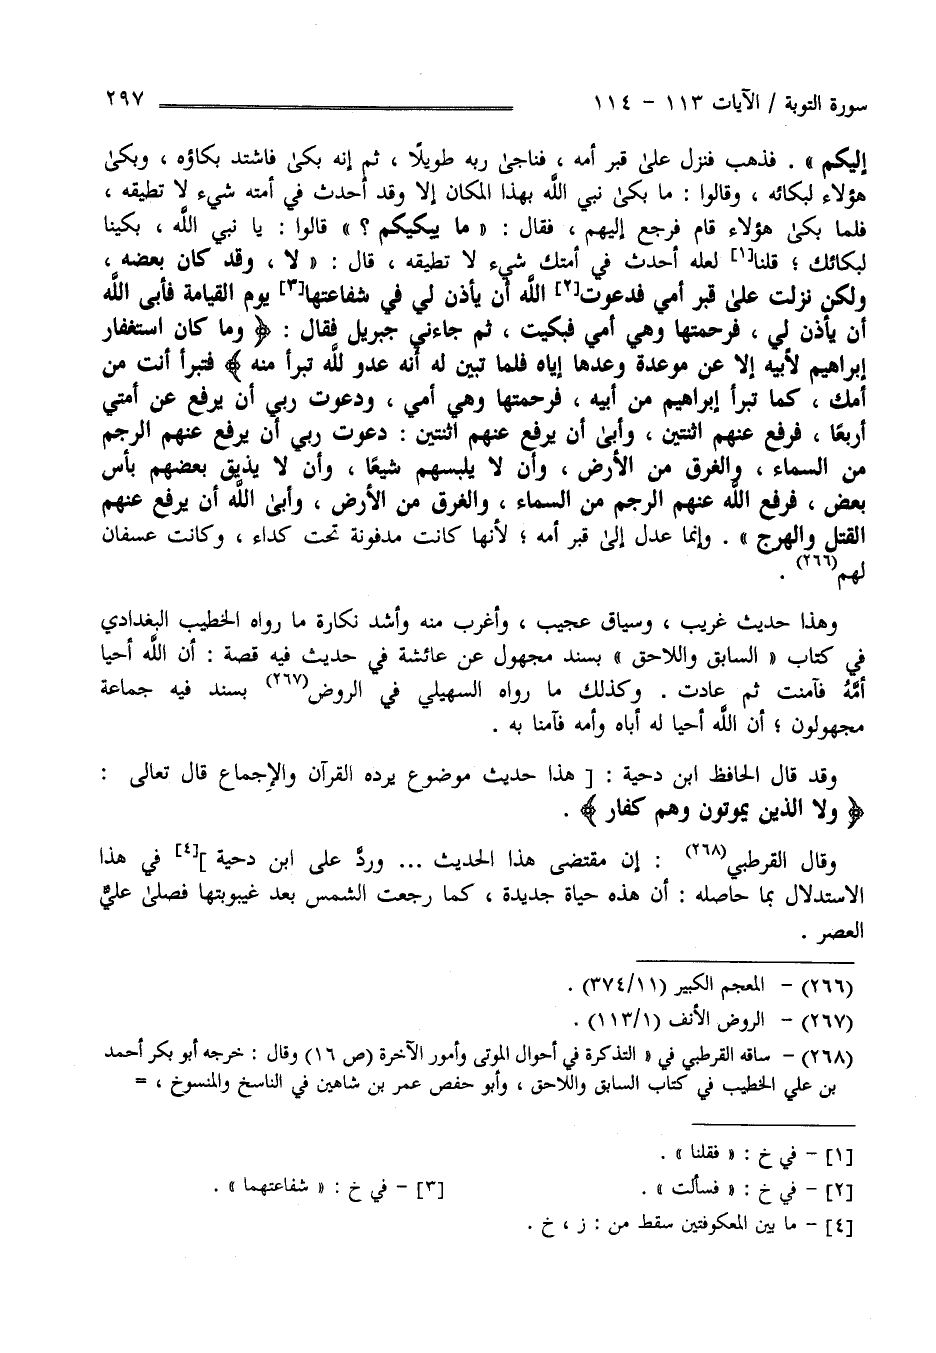 سورة التوبة / الآيات ١١٣ - ١١٤
٢٩٧
إليكم » . فذهب فنزل علىٰ قبر أمه ، فناجىٰ ربه طويلًا ، ثم إنه بكىٰ فاشتد بكاؤه ، وبكىٰ
هؤلاء لبكائه ، وقالوا : ما بكىٰ نبي اللَّه بهذا المكان إلا وقد أحدث في أمته شيء لا تطيقه ،
فلما بكىٰ هؤلاء قام فرجع إليهم ، فقال : « ما يبكيكم ؟ » قالوا : يا نبي اللَّه ، بكينا
لبكائك ؛ قلنا[١] لعله أحدث في أمتك شيء لا تطيقه ، قال : « لا ، وقد كان بعضه ،
ولكن نزلت علىٰ قبر أمي فدعوت[٢] اللَّه أن يأذن لي في شفاعتها[٣] يوم القيامة فأبى اللَّه
أن يأذن لي ، فرحمتها وهي أمي فبكيت ، ثم جاءني جبريل فقال : ﴿ وما كان استغفار
إبراهيم لأبيه إلا عن موعدة وعدها إياه فلما تبين له أنه عدو للَّه تبرأ منه ﴾ فتبرأ أنت من
أمك ، كما تبرأ إبراهيم من أبيه ، فرحمتها وهي أمي ، ودعوت ربي أن يرفع عن أمتي
أربعًا ، فرفع عنهم اثنتين ، وأبىٰ أن يرفع عنهم اثنتين : دعوت ربي أن يرفع عنهم الرجم
من السماء ، والغرق من الأرض ، وأن لا يلبسهم شيعًا ، وأن لا يذيق بعضهم بأس
بعض ، فرفع اللَّه عنهم الرجم من السماء ، والغرق من الأرض ، وأبىٰ اللَّه أن يرفع عنهم
القتل والهرج » . وإنما عدل إلىٰ قبر أمه ؛ لأنها كانت مدفونة تحت كداء ، وكانت عسفان
لهم(٢٦٦) .
وهذا حديث غريب ، وسياق عجيب ، وأغرب منه وأشد نكارة ما رواه الخطيب البغدادي
في كتاب « السابق واللاحق » بسند مجهول عن عائشة في حديث فيه قصة : أن اللَّه أحيا
أمَّهُ فآمنت ثم عادت . وكذلك ما رواه السهيلي في الروض(٢٦٧) بسند فيه جماعة
مجهولون ؛ أن اللَّه أحيا له أباه وأمه فآمنا به .
وقد قال الحافظ ابن دحية : [ هذا حديث موضوع يرده القرآن والإجماع قال تعالى :
﴿ ولا الذين يموتون وهم كفار ﴾ .
وقال القرطبي(٢٦٨) : إن مقتضى هذا الحديث ... وردَّ على ابن دحية ][٤] في هذا
الاستدلال بما حاصله : أن هذه حياة جديدة ، كما رجعت الشمس بعد غيبوبتها فصلىٰ عليٌّ
العصر .
(٢٦٦) - المعجم الكبير (٣٧٤/١١) .
(٢٦٧) - الروض الأنف (١١٣/١) .
(٢٦٨) - ساقه القرطبي في « التذكرة في أحوال الموتى وأمور الآخرة (ص ١٦) وقال : خرجه أبو بكر أحمد
بن علي الخطيب في كتاب السابق واللاحق ، وأبو حفص عمر بن شاهين في الناسخ والمنسوخ ، =
[١] - في خ : « فقلنا » .
[٢] - في خ : « فسألت » .
[٣] - في خ : « شفاعتهما » .
[٤] - ما بين المعكوفتين سقط من : ز ، خ .